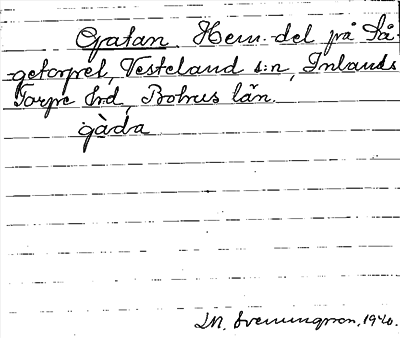 Gatan. Hem.del på Så-
getorpet, Vesteland s:n, Inlands
Torpe hd, Bohus län.
gàda
1940.